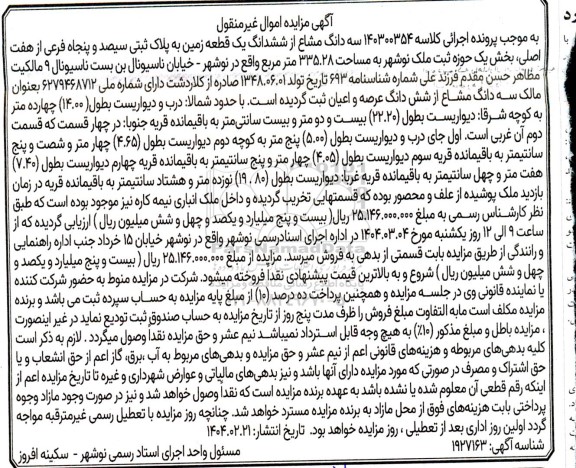 آگهی مزایده اموال غیرمنقول
به موجب پرونده اجرائی کلاسه ۱۴۰۳۰۰۳۵۴ سه دانگ مشاع از ششدانگ یک قطعه زمین به پلاک ثبتی سیصد و پنجاه فرعی از هفت
اصلی، بخش یک حوزه ثبت ملک نوشهر به مساحت ۳۳۵.۲۸ متر مربع واقع در نوشهر - خیابان ناسیونال بن بست ناسیونال ۹ مالکیت
مظاهر حسن مقدم فرزند علی شماره شناسنامه ۶۹۳ تاریخ تولد ۱۳۴۸.۰۶.۰۱ صادره از کلاردشت دارای شماره ملی ۶۲۷۹۴۶۸۷۱۲ بعنوان
مالک سه دانگ مشاع از شش دانگ عرصه و اعیان ثبت گردیده است. با حدود شمالا: درب و دیواریست بطول (۱۴.۰۰) چهارده متر
به کوچه شرقا: دیواریست بطول (۲۲.۲۰) بیست و دو متر و بیست سانتی‌متر به باقیمانده قریه جنوبا: در چهار قسمت که قسمت
دوم آن غربی است. اول جای درب و دیواریست بطول (۵.۰۰) پنج متر به کوچه دوم دیواریست بطول (۴.۶۵) چهار متر و شصت و پنج
سانتیمتر به باقیمانده قریه سوم دیواریست بطول (۴.۰۵) چهار متر و پنج سانتیمتر به باقیمانده قریه چهارم دیواریست بطول (۷.۴۰)
هفت متر و چهل سانتیمتر به باقیمانده قریه غربا: دیواریست بطول (۱۹.۸۰) نوزده متر و هشتاد سانتیمتر به باقیمانده قریه در زمان
بازدید ملک پوشیده از علف و محصور بوده که قسمتهایی تخریب گردیده و داخل ملک انباری نیمه کاره نیز موجود بوده است که طبق
نظر کارشناس رسمی به مبلغ ۲۵.۱۴۶.۰۰۰.۰۰۰ ریال( بیست و پنج میلیارد و یکصد و چهل و شش میلیون ریال ) ارزیابی گردیده که از
ساعت ۹ الی ۱۲ روز یکشنبه مورخ ۱۴۰۴.۰۳.۰۴ در اداره اجرای اسنادرسمی نوشهر واقع در نوشهر خیابان ۱۵ خرداد جنب اداره راهنمایی
و رانندگی از طریق مزایده بابت قسمتی از بدهی به فروش میرسد. مزایده از مبلغ ۲۵.۱۴۶.۰۰۰.۰۰۰ ریال ( بیست و پنج میلیارد و یکصد و
چهل و شش میلیون ریال ) شروع و به بالاترین قیمت پیشنهادی نقدا فروخته میشود. شرکت در مزایده منوط به حضور شرکت کننده
یا نماینده قانونی وی در جلسه مزایده و همچنین پرداخت ده درصد (۱۰) از مبلغ پایه مزایده به حساب سپرده ثبت می باشد و برنده
مزایده مکلف است مابه التفاوت مبلغ فروش را ظرف مدت پنج روز از تاریخ مزایده به حساب صندوق ثبت تودیع نماید در غیر اینصورت
، مزایده باطل و مبلغ مذکور (۱۰٪) به هیچ وجه قابل استرداد نمیباشد نیم عشر و حق مزایده نقدا وصول میگردد . لازم به ذکر است
کلیه بدهی‌های مربوطه و هزینه‌های قانونی اعم از نیم عشر و حق مزایده و بدهی‌های مربوط به آب ،برق، گاز اعم از حق انشعاب و یا
حق اشتراک و مصرف در صورتی که مورد مزایده دارای آنها باشد و نیز بدهی‌های مالیاتی و عوارض شهرداری و غیره تا تاریخ مزایده اعم از
اینکه رقم قطعی آن معلوم شده یا نشده باشد به عهده برنده مزایده است که نقدا وصول خواهد شد و نیز در صورت وجود مازاد وجوه
پرداختی بابت هزینه‌های فوق از محل مازاد به برنده مزایده مسترد خواهد شد. چنانچه روز مزایده با تعطیل رسمی غیرمترقبه مواجه
گردد اولین روز اداری بعد از تعطیلی ، روز مزایده خواهد بود. تاریخ انتشار: ۱۴۰۴.۰۲.۲۱
شناسه آگهی: ۱۹۲۷۱۶۳ مسئول واحد اجرای اسناد رسمی نوشهر - سکینه افروز